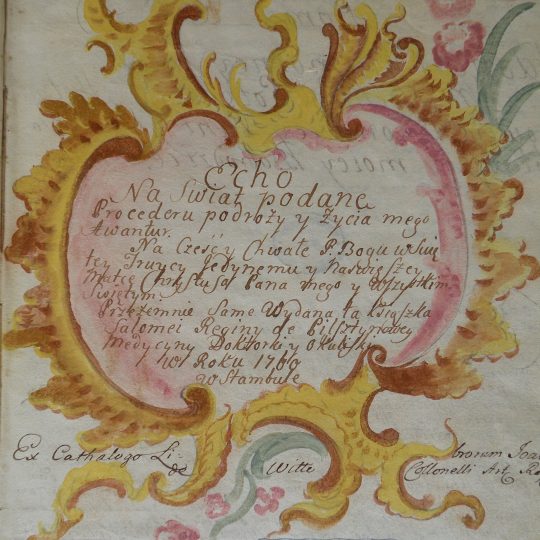 Echo
Na Swiat podane
Procederu podroży y Życia mego
Awantur.
Na Cześć y Chwałe P. Bogu w Swię
tey Truycy Jedynemu y Naswięszey
Matce Chrystusa Pana mego y Wszystkim
Swiętym
Przezemnie Same Wydana ta Xiąszka
Salomei Reginy de Pilsztynowey
Medycyny Doktorki y Okulistki
w Roku 1760
w Stambule
Ex Cathalogo Li- brorum Joa
de Witte Collonelli Art. Re